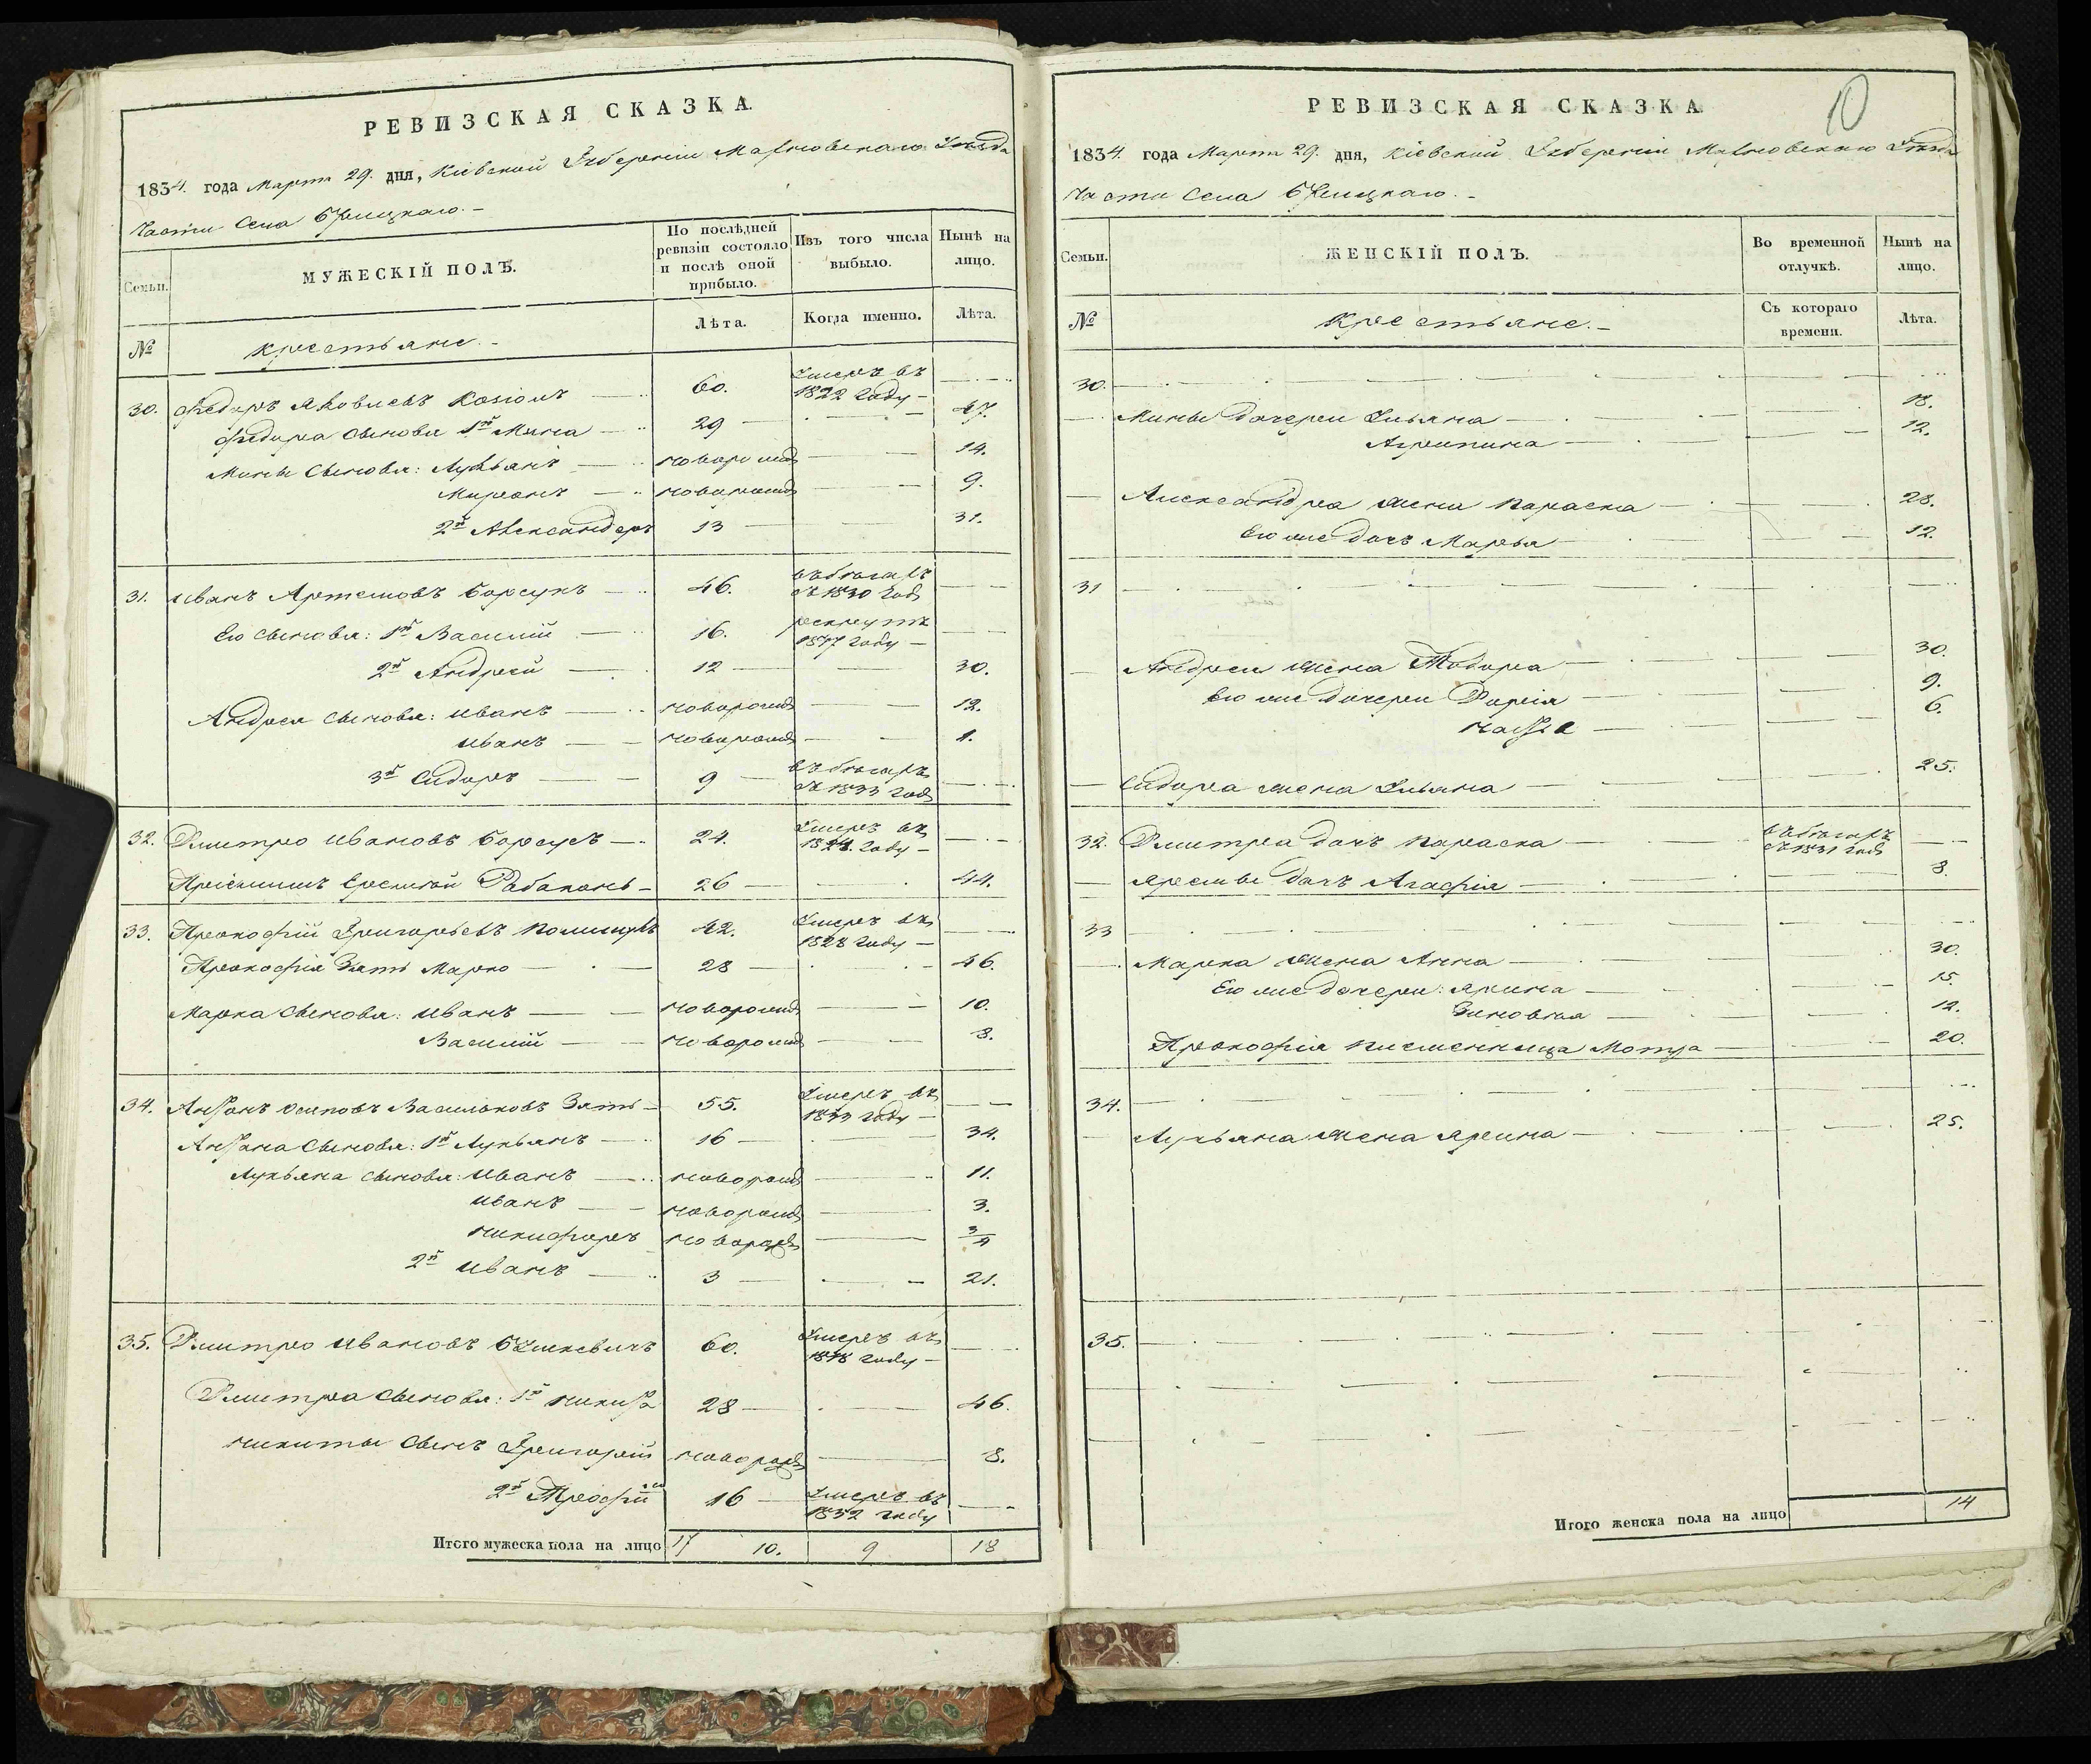 РЕВИЗСКАЯ СКАЗКА.
1834. года Марта 29. дня, Кіевской Губерніи Махновскаго Уѣзда
Части Села
Семьи.
МУЖЕСКІЙ ПОЛЪ.
По послѣдней ревизіи состояло и послѣ оной прибыло.
Изъ того числа выбыло.
Нынѣ на лицо.
№
Крестьяне. -
Лѣта.
Когда именно.
Лѣта.
30. Федоръ Яковлевъ Козіолъ — 60. Умеръ въ 1822 Году —
Федора сыновья 1й Мина — 29 — 47.
Мины сыновья: Лукьянъ — новорожд — 14.
Миронъ — новорожд — 9.
2й Александеръ 13 — 31.
31. Иванъ Артемовъ Борсукъ — 46. въ бѣгахъ съ 1830 Года
Его сыновья: 1й Василій — 16. рекрутъ 1817 году —
2й Андрей — 12 — 30.
Андрея сыновья: Иванъ — новорожд — 12.
Иванъ — новорожд — 1.
3й Сидоръ — 9 — въ бѣгахъ съ 1833 Года
32. Дмитро Ивановъ Борсукъ — 24. Умеръ въ 1824. Году —
26 — 44.
33. Прокофій Григорьевъ 42. Умеръ въ 1828 Году —
Прокофія Зять Марко — 28 — 46.
Марка сыновья: Иванъ — новорожд — 10.
Василій — новорожд — 8.
34. Антонъ Осиповъ Васильковъ Зять — 55. Умеръ въ 1833 Году —
Антона сыновья: 1й Лукьянъ — 16 — 34.
Лукьяна сыновья: Иванъ — новорожд — 11.
Иванъ — новорожд — 3.
Никифоръ новорожд — 3/4
2й Иванъ — 3 — 21.
35. Дмитро Ивановъ 60. Умеръ въ 1818 году —
Дмитра сыновья: 1й Никита 28 — 46.
Никиты сынъ Григорій новорожд — 8.
2й 16 — Умеръ въ 1832 Году
Итого мужеска пола на лицо 17 10. 9 18
10
РЕВИЗСКАЯ СКАЗКА
1834. года Марта 29. дня, Кіевской Губерніи Махновскаго Уѣзда
Части Села
Семьи.
ЖЕНСКІЙ ПОЛЪ.
Во временной отлучкѣ.
Нынѣ на лицо.
№
Крестьяне. -
Съ котораго времени.
Лѣта.
30.
Мины дочери Ульяна — 18.
Агрипина — 12.
Александра жена Параска — 28.
Его же дочь Марья — 12.
31
Андрея жена Тодора — 30.
Его же дочери Дарія — 9.
Настя — 6.
Сидора жена Ульяна — 25.
32. Дмитра дочь Параска — въ бѣгахъ съ 1831 года
дочь Агафія — 8.
33
Марка жена Анна — 30.
Его же дочери: Ярина — 15.
Зиновія — 12.
Прокофія племенница Мотря — 20.
34.
Лукьяна жена Ярина — 25.
35.
Итого женска пола на лицо 14